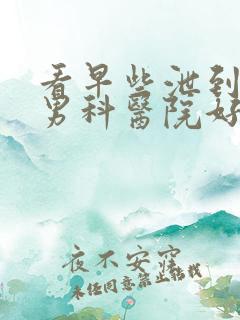 看早些泄到
男科醫院好
夜不安寧
未经同意禁止转载